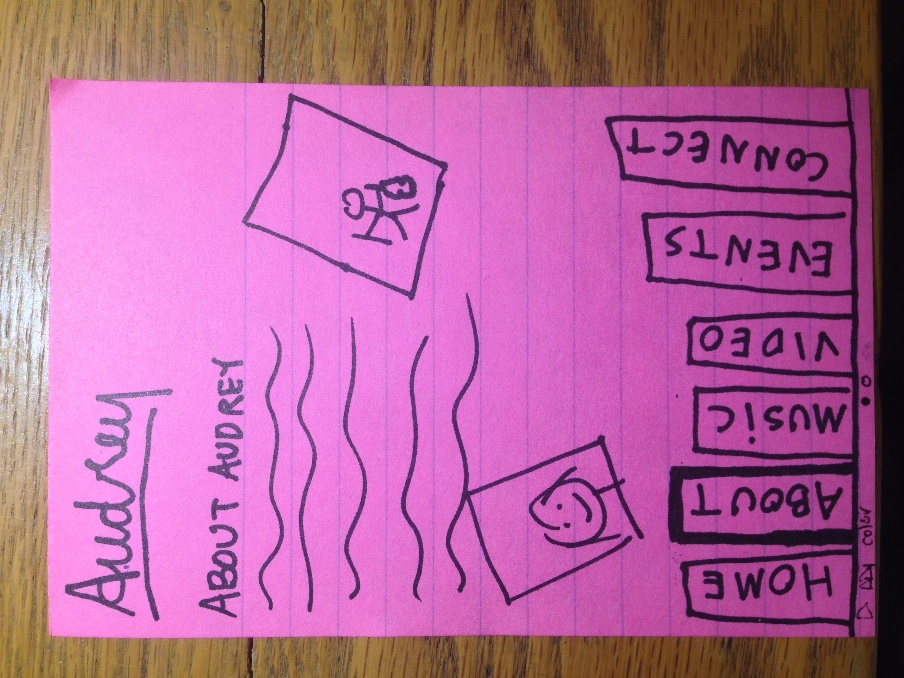 Audrey
ABOUT AUDREY
HOME
ABOUT
MUSiC
VIDEO
EVENTS
CONNECT
color